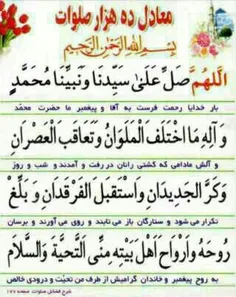 معادل ده هزار صلوات
بِسْمِ اللهِ الرَّحْمٰنِ الرَّحِيمِ
اَللّهُمَّ صَلِّ عَلىٰ سَيِّدِنا وَنَبِيِّنا مُحَمَّدٍ
بار خدایا رحمت فرست به آقا و پیغمبر ما حضرت محمد
وَ آلِهِ مَا اخْتَلَفَ الْمَلَوانِ وَتَعاقَبَ الْعَصْرانِ
و آلش مادامی که کشتی رانان در رفت و آمدند و شب و روز
وَكَرَّ الْجَديدانِ وَاسْتَقْبَلَ الْفَرْقَدانِ وَ بَلِّغْ
تکرار می شود و ستارگان باز می تابند و روی می آورند و برسان
رُوحَهُ وَاَرْواحَ اَهْلِ بَيْتِهِ مِنِّى التَّحِيَّةَ وَالسَّلامَ
به روح پیغمبر و خاندان گرامیش از طرف من تحیّت و درودی خالص
شرح فضائل صلوات صفحه ۱۷۷